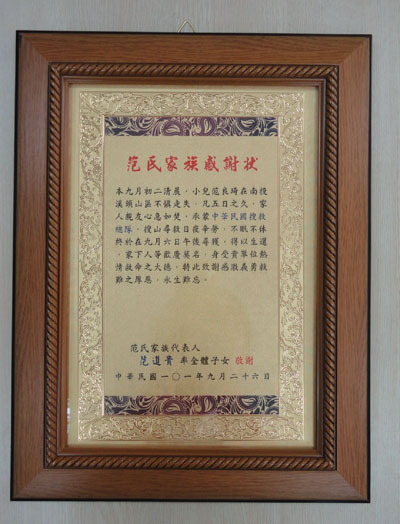 范氏家族感謝狀
本九月初二清晨，小兒范良琦在南投
溪頭山區不慎走失，凡五日之久，家
人親友心急如焚，承蒙中華民國搜救
總隊，搜山尋救日夜辛勞，不眠不休
終於在九月六日午後尋獲，得以生還
，家下人等歡慶莫名，身受貴單位熱
情救命之大德，特此致謝感激義勇救
難之厚恩，永生難忘。
范氏家族代表人
范進 率全體子女 敬謝
中華民國一〇一年九月二十六日